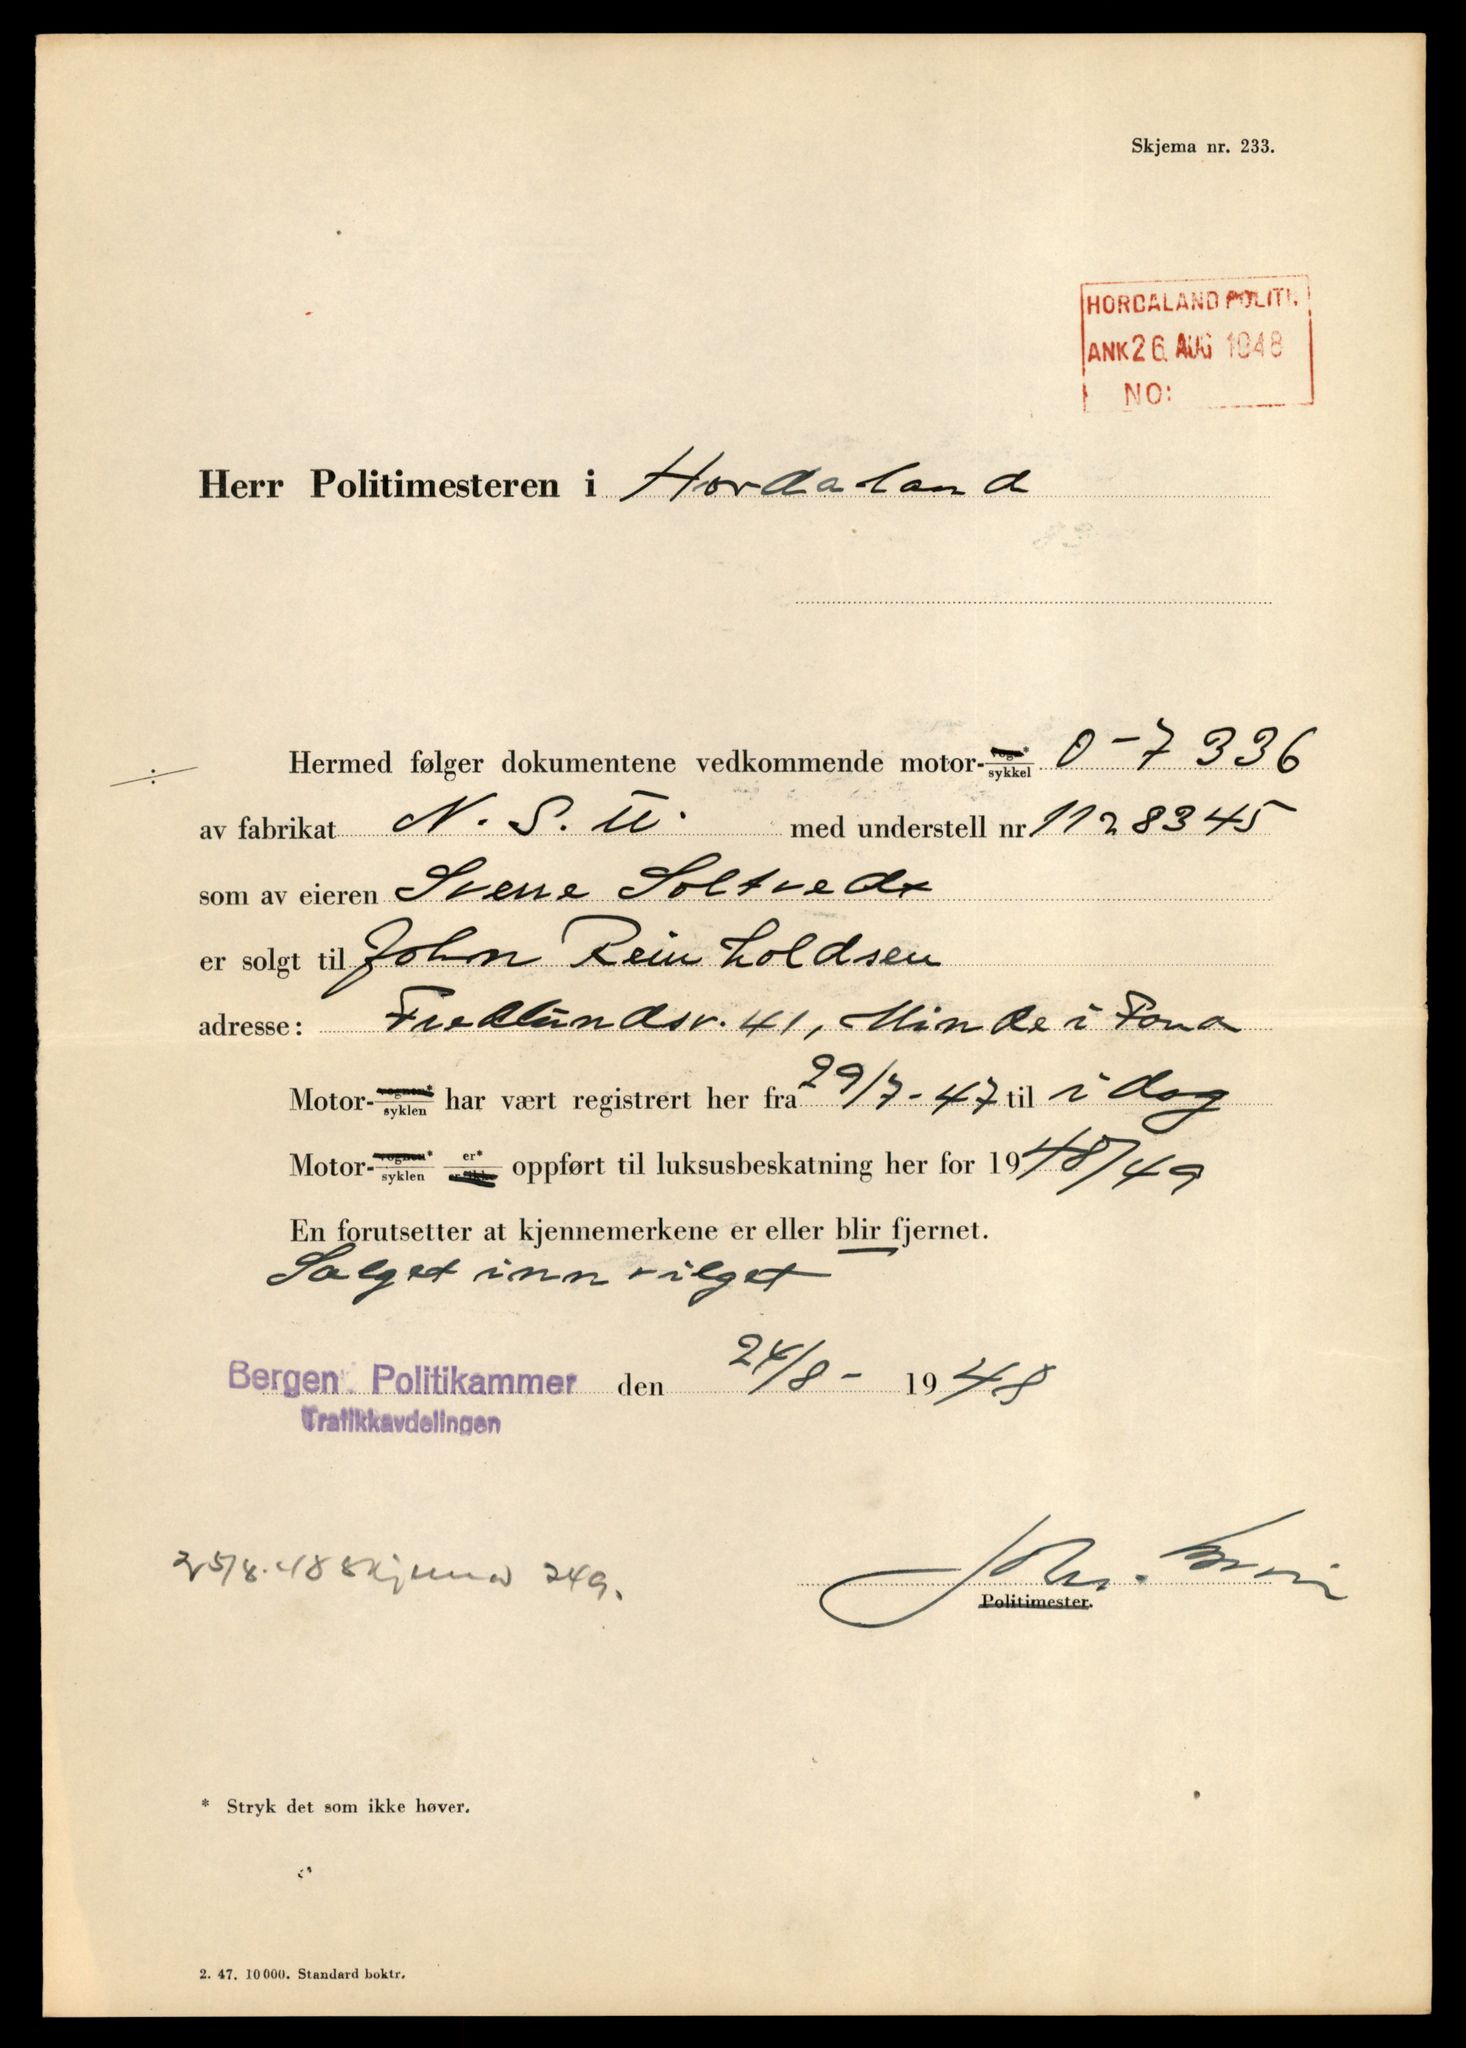 Skjema nr. 233.
HORDALAND POLITI.
ANK 26 AUG 1948
NO:
Herr Politimesteren i Hordaland
Hermed følger dokumentene vedkommende motor-vogn*/sykkel O-7336
av fabrikat N.S.U. med understell nr 1128345
som av eieren Sverre Soltvedt
er solgt til John Reinholdsen
adresse: Fredlundsv. 41, Minde i Fana
Motor-vognen*/syklen har vært registrert her fra 29/7-47 til i dag
Motor-vognen*/syklen er*/er ikke oppført til luksusbeskatning her for 1948/49
En forutsetter at kjennemerkene er eller blir fjernet.
Salget innvilget
Bergen Politikammer den 24/8- 1948
Trafikkavdelingen
25/8.48 skjema 249.
Politimester.
* Stryk det som ikke høver.
2. 47. 10000. Standard boktr.